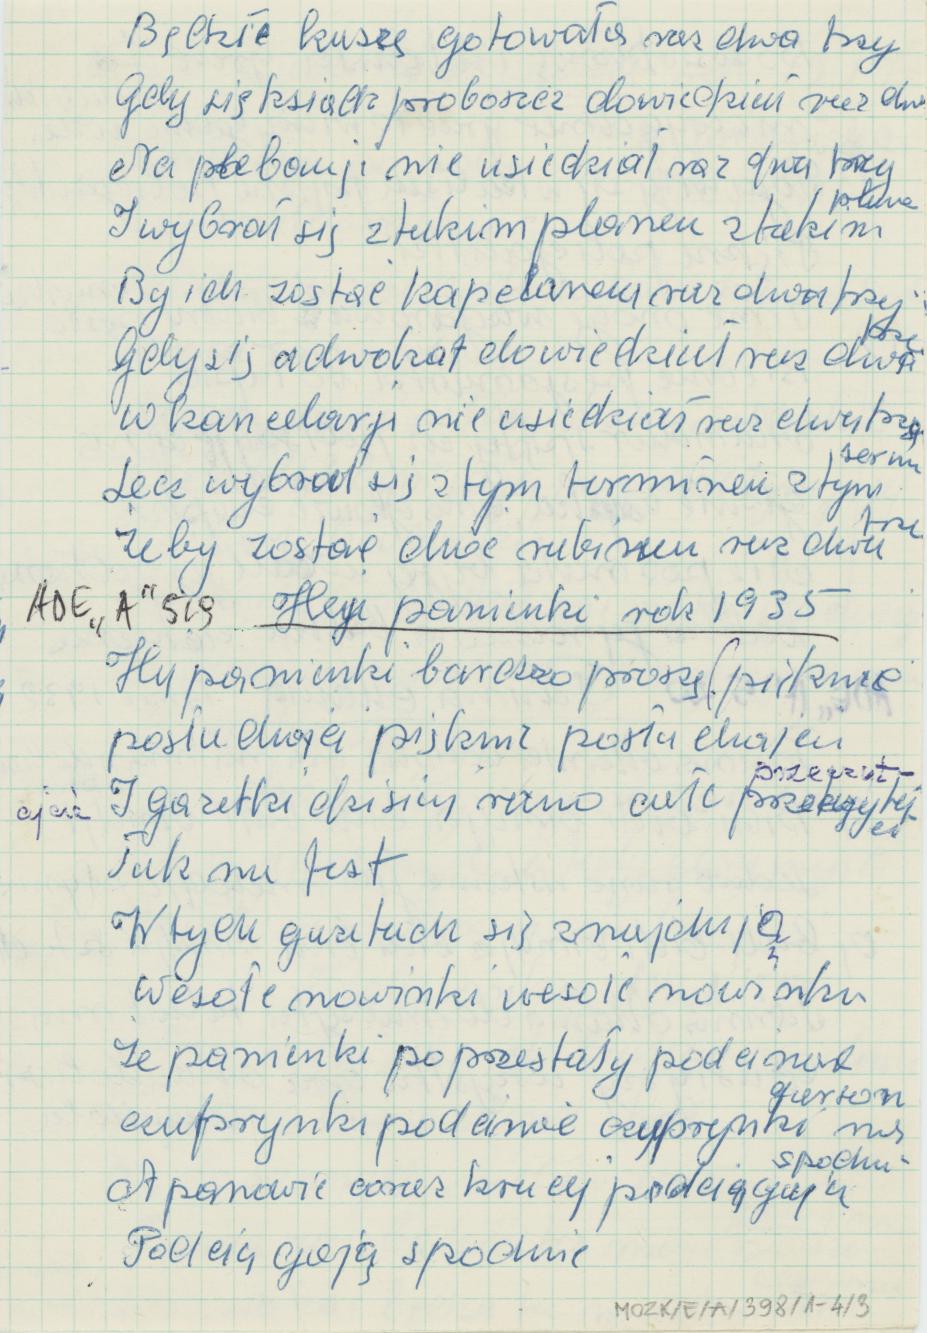 Będzie kuszę gotowała raz dwa trzy
Gdy się ksiądz proboszcz dowiedział raz dwa
Na plebanji nie usiedział raz dwa trzy
I wybrał się z takim planem z takim plane
By ich zostać kapelanem raz dwa trzy
Gdy się adwokat dowiedział raz dwa trzy
W kancelarji nie usiedział raz dwa trzy
Lecz wybrał się z tym terminem z tym
Żeby zostać choć rabinem raz dwa trze
ADE „A" 519 Hej panienki rok 1935
Hej panienki bardzo proszę (pięknie
posłuchajcie pięknie posłuchajcie
I gazetki dzisiej rano całe przeczytajcie przeczyt-ajcie
Tak na fest
W tych gazetach się znajdują
Wesołe nowinki wesołe nowinki
Że panienki poprzestały podcinać
czuprynki podcinać czuprynki na garson
A panowie coraz krucej podciągają spodni-
Podciągają spodnie
MOZK/E/A/398/1-4/3